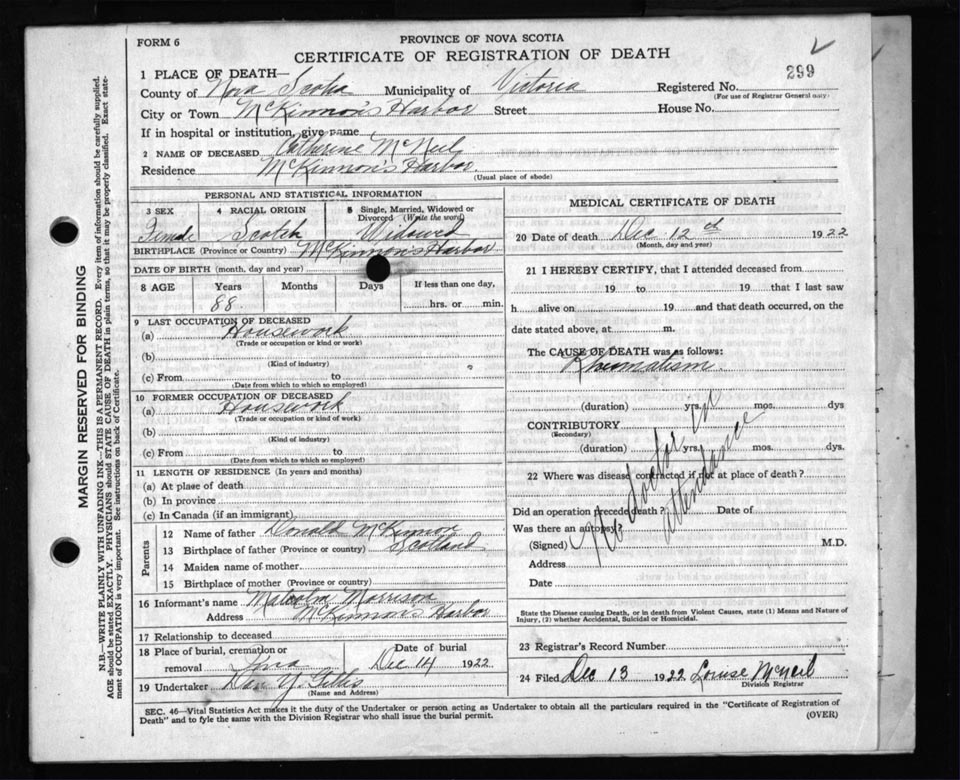 FORM 6
PROVINCE OF NOVA SCOTIA
CERTIFICATE OF REGISTRATION OF DEATH
299
1 PLACE OF DEATH—
County of Nova Scotia Municipality of Victoria Registered No.
(For use of Registrar General only)
City or Town McKinnon's Harbor Street House No.
If in hospital or institution, give name
2 NAME OF DECEASED Catherine McNeil
Residence McKinnon's Harbor
(Usual place of abode)
PERSONAL AND STATISTICAL INFORMATION
3 SEX 4 RACIAL ORIGIN 5 Single, Married, Widowed or
Divorced (Write the word)
Female Scotch Widowed
BIRTHPLACE (Province or Country) McKinnon's Harbor
DATE OF BIRTH (month, day and year)
8 AGE Years Months Days If less than one day,
88 hrs. or min.
9 LAST OCCUPATION OF DECEASED
(a) Housework
(Trade or occupation or kind or work)
(b)
(Kind of industry)
(c) From to
(Date from which to which so employed)
10 FORMER OCCUPATION OF DECEASED
(a) Housework
(Trade or occupation or kind of work)
(b)
(Kind of industry)
(c) From to
(Date from which to which so employed)
11 LENGTH OF RESIDENCE (In years and months)
(a) At place of death
(b) In province
(c) In Canada (if an immigrant)
Parents
12 Name of father Donald McKinnon
13 Birthplace of father (Province or country) Scotland
14 Maiden name of mother
15 Birthplace of mother (Province or country)
16 Informant's name Malcolm Morrison
Address McKinnon's Harbor
17 Relationship to deceased
18 Place of burial, cremation or Date of burial
removal Iona Dec 14 1922
19 Undertaker Dan Y. Gillis
(Name and Address)
MEDICAL CERTIFICATE OF DEATH
20 Date of death Dec 12th 1922
(Month, day and year)
21 I HEREBY CERTIFY, that I attended deceased from
19 to 19 that I last saw
h alive on 19 and that death occurred, on the
date stated above, at m.
The CAUSE OF DEATH was as follows:
Rheumatism.
(duration) yrs. mos. dys
CONTRIBUTORY
(Secondary)
(duration) yrs. mos. dys.
22 Where was disease contracted if not at place of death?
Did an operation precede death? Date of
Was there an autopsy?
(Signed) M.D.
Address
Date
No doctor in
attendance
State the Disease causing Death, or in death from Violent Causes, state (1) Means and Nature of
Injury, (2) whether Accidental, Suicidal or Homicidal.
23 Registrar's Record Number
24 Filed Dec 13 1922 Louise McNeil
Division Registrar
SEC. 46—Vital Statistics Act makes it the duty of the Undertaker or person acting as Undertaker to obtain all the particulars required in the "Certificate of Registration of
Death" and to fyle the same with the Division Registrar who shall issue the burial permit.
(OVER)
MARGIN RESERVED FOR BINDING
N.B.—WRITE PLAINLY WITH UNFADING INK—THIS IS A PERMANENT RECORD. Every item of information should be carefully supplied.
AGE should be stated EXACTLY. PHYSICIANS should STATE CAUSE OF DEATH in plain terms, so that it may be properly classified. Exact state-
ment of OCCUPATION is very important. See instructions on back of Certificate.